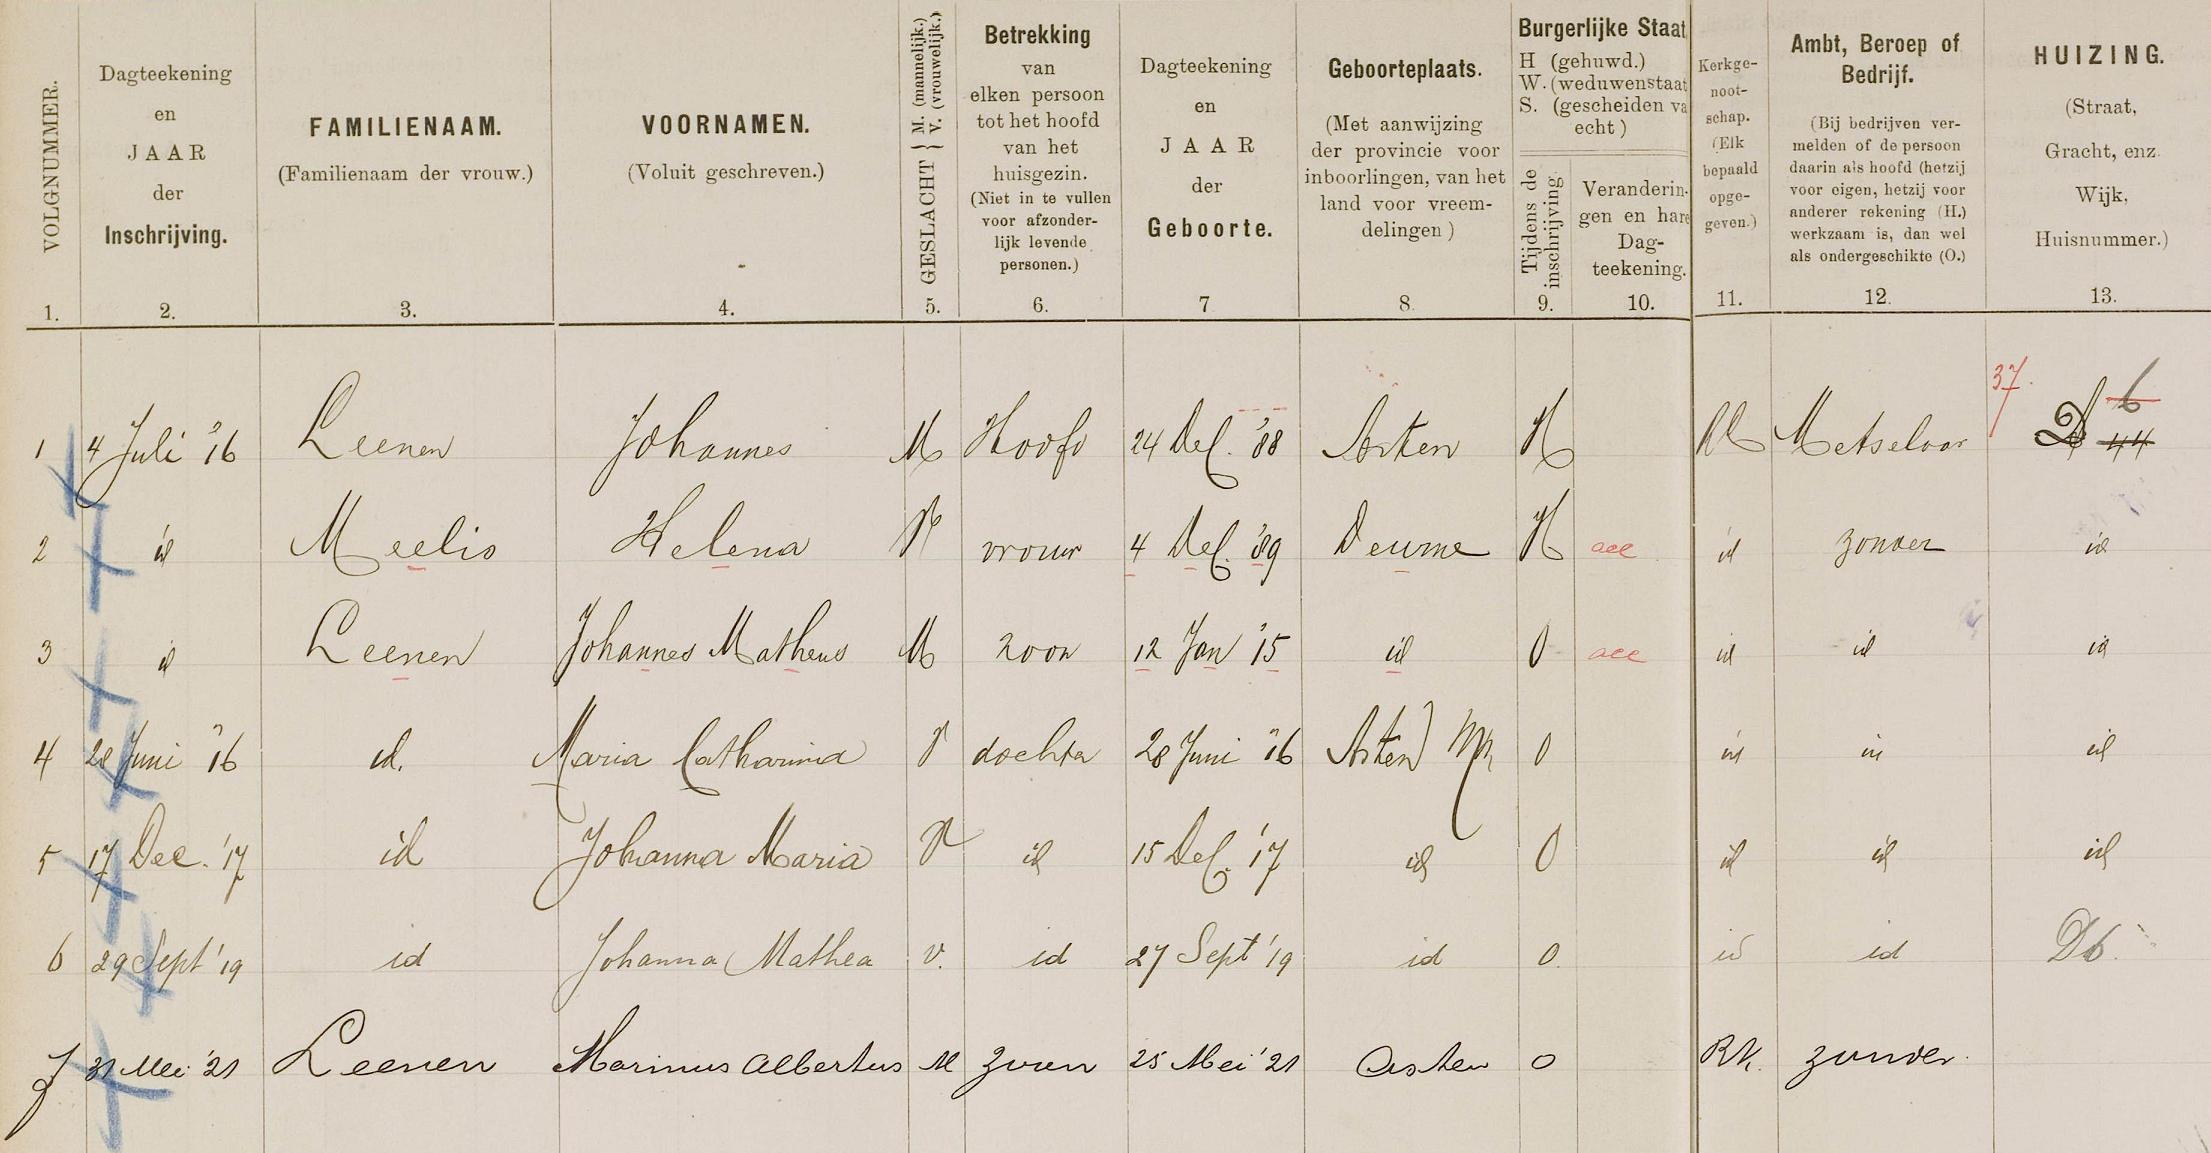 VOLGNUMMER.
1.
Dagteekening
en
JAAR
der
Inschrijving.
2.
FAMILIENAAM.
(Familienaam der vrouw.)
3.
VOORNAMEN.
(Voluit geschreven.)
4.
GESLACHT { M. (mannelijk.)
V. (vrouwelijk.)
5.
Betrekking
van
elken persoon
tot het hoofd
van het
huisgezin.
(Niet in te vullen
voor afzonder-
lijk levende
personen.)
6.
Dagteekening
en
JAAR
der
Geboorte.
7
Geboorteplaats.
(Met aanwijzing
der provincie voor
inboorlingen, van het
land voor vreem-
delingen)
8.
Burgerlijke Staat
H (gehuwd.)
W. (weduwenstaat
S. (gescheiden va
echt)
Tijdens de
inschrijving.
9.
Veranderin-
gen en hare
Dag-
teekening.
10.
Kerkge-
noot-
schap.
(Elk
bepaald
opge-
geven.)
11.
Ambt, Beroep of
Bedrijf.
(Bij bedrijven ver-
melden of de persoon
daarin als hoofd (hetzij
voor eigen, hetzij voor
anderer rekening (H.)
werkzaam is, dan wel
als ondergeschikte (O.)
12.
HUIZING.
(Straat,
Gracht, enz.
Wijk,
Huisnummer.)
13.
37. 6
1 4 Juli '16 Leenen Johannes M Hoofd 24 Dec. '88 Asten H RK Metselaar D 44
2 id Meelis Helena V vrouw 4 Dec. '89 Deurne H acc id zonder id
3 id Leenen Johannes Matheus M zoon 12 Jan '15 id O acc id id id
4 28 Juni '16 id. Maria Catharina V dochter 28 Juni '16 Asten O id id id
5 17 Dec. '17 id Johanna Maria V id 15 Dec. '17 id O id id id
6 29 Sept '19 id Johanna Mathea v. id 27 Sept '19 id O. id id D6.
7 31 Mei '21 Leenen Marinus Albertus M zoon 25 Mei '21 Asten O RK. zonder.